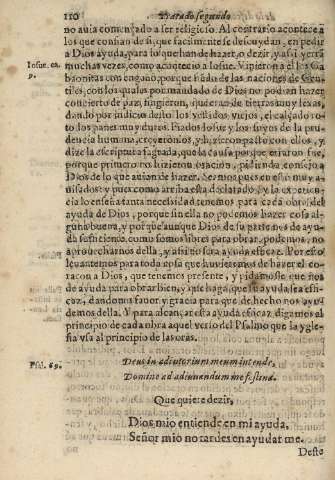 110 Tratado segundo
no auia començado a ser religioso. Al contrario acontece a
los que confian de si, que facilmente se descuydan, en pedir
a Dios ayuda, para lo que han de hazer, o dezir, y assi yerrã
Iosue. ca.
9.
muchas vezes, como acontecio a Iosue. Vinieron a el los Ga
baonitas con engaño, porque siendo de las naciones de Gen
tiles, con los quales por mandado de Dios no podian hazer
concierto de paz, fingieron, que eran de tierras muy lexas,
dando por indicio desto los vestidos viejos, el calçado ro-
to, los panes muy duros. Fiados Iosue y los suyos de la pru
dencia humana, creyeronlos, y hizieron pasto con ellos, y
dize la escriptura sagrada, que la causa porque erraron fue,
porque primero no hizieron oracion, pidiendo consejo a
Dios de lo que auian de hazer. Seamos pues en esto muy a-
uisados: y pues como arriba esta declarado, y la experien-
cia lo enseña tanta necesidad tenemos para cada obra del
ayuda de Dios, porque sin ella no podemos hazer cosa al-
guna buena, y porque aunque Dios de su parte nos de ayu-
da sufficiente, como somos libres para obrar, podemos, no
aprouecharnos della, y assi no sera ayuda efficaz. Por esso
leuantemos para toda cosa que huuieremos de hazer el co-
raçon a Dios, que tenemos presente, y pidamosle que nos
de ayuda para obrar bien, y que haga, que la ayuda sea effi-
caz, dandonos fauor y gracia para que de hecho nos ayu-
demos della. Y para alcançar esta ayuda eficaz, digamos al
principio de cada obra aquel verso del Psalmo que la ygle-
sia vsa al principio de las oras.
Psal. 69.
Deus in adiutorium meum intende,
Domine ad adiuuandum me festina.
Que quiere dezir,
Dios mio entiende en mi ayuda.
Señor mio no tardes en ayudar me.
Deste